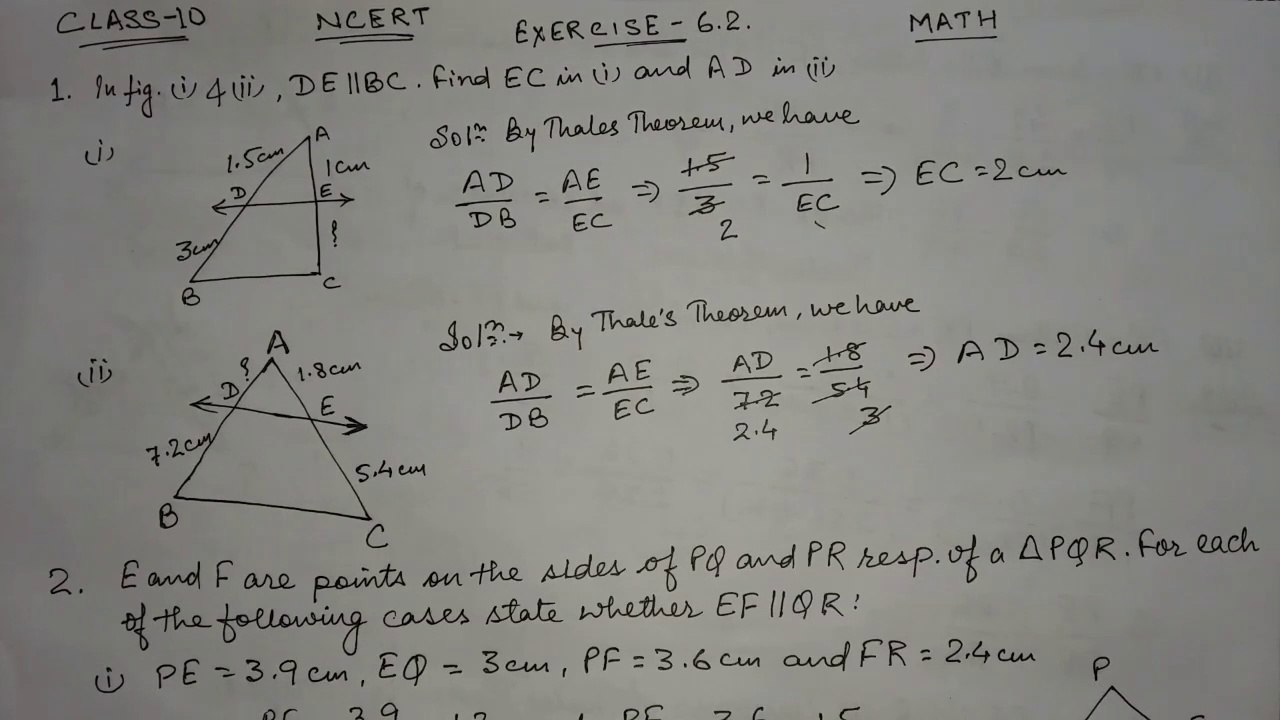 CLASS-10 NCERT EXERCISE - 6.2. MATH
1. In fig. (i) & (ii), DE || BC. Find EC in (i) and AD in (ii)
(i)
A
1.5cm
1cm
D
E
3cm
?
B
C
Sol^n: By Thales Theorem, we have
AD/DB = AE/EC => 1.5/3 = 1/EC => EC = 2 cm
2
(ii)
A
?
1.8cm
D
E
7.2cm
5.4cm
B
C
Sol^n:→ By Thale's Theorem, we have
AD/DB = AE/EC => AD/7.2 = 1.8/5.4 => AD = 2.4 cm
2.4 3
2. E and F are points on the sides of PQ and PR resp. of a ΔPQR. For each
of the following cases state whether EF || QR:
(i) PE = 3.9 cm, EQ = 3cm, PF = 3.6 cm and FR = 2.4 cm
P